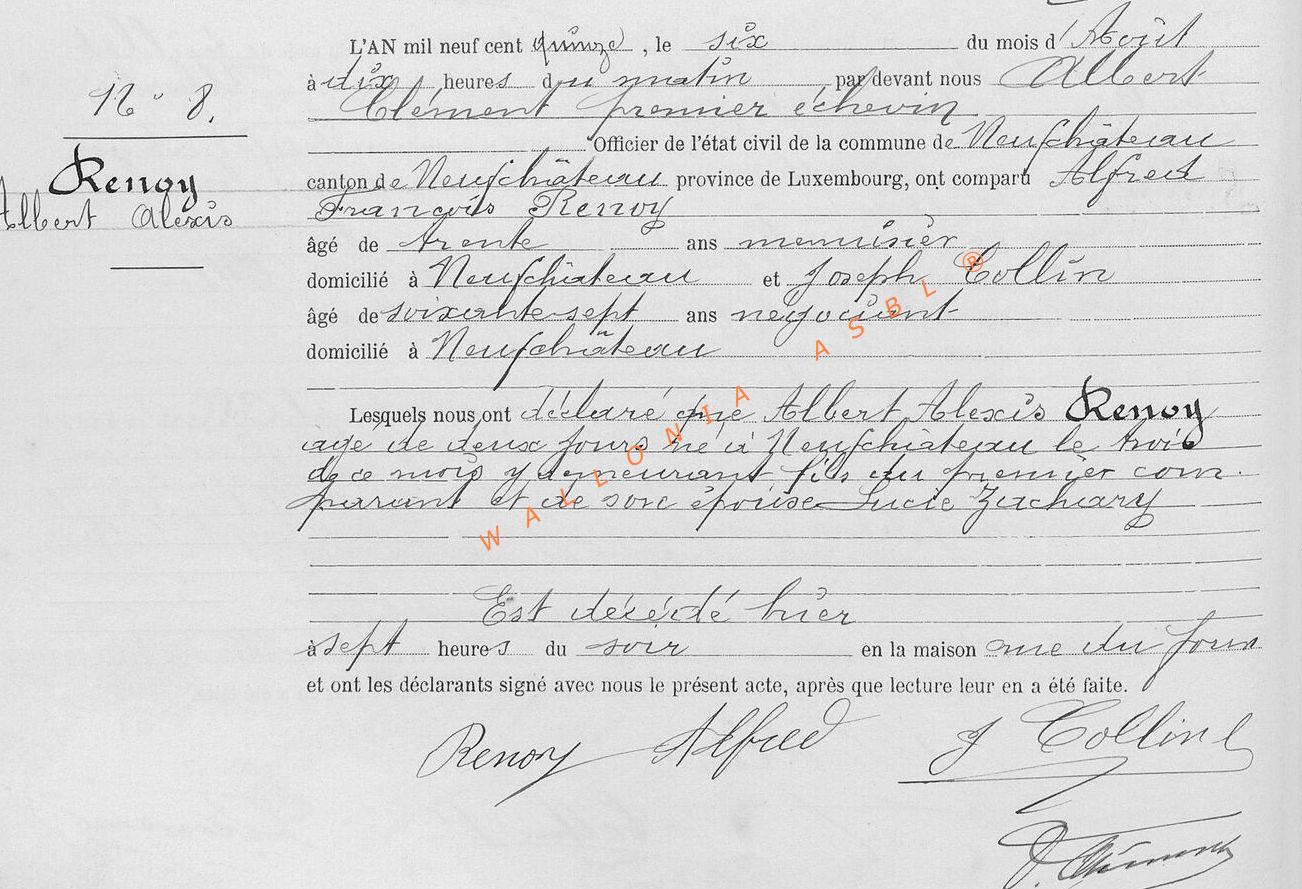 L'AN mil neuf cent quinze, le six du mois d'Août
à dix heures du matin par devant nous Albert
Clément premier échevin
Officier de l'état civil de la commune de Neufchâteau
canton de Neufchâteau province de Luxembourg, ont comparu Alfred
François Renoy
âgé de trente ans menuisier
domicilié à Neufchâteau et Joseph Collin
âgé de soixante sept ans negociant
domicilié à Neufchâteau
Lesquels nous ont déclaré que Albert Alexis Renoy
age de deux jours né à Neufchâteau le trois
de ce mois y demeurant fils du premier com-
parant et de son épouse Lucie Zachary
Est décédé hier
à sept heures du soir en la maison rue du
et ont les déclarants signé avec nous le présent acte, après que lecture leur en a été faite.
Renoy Alfred J Collin
Clément
N° 8.
Renoy
Albert Alexis
WALLONIA ASBL ®